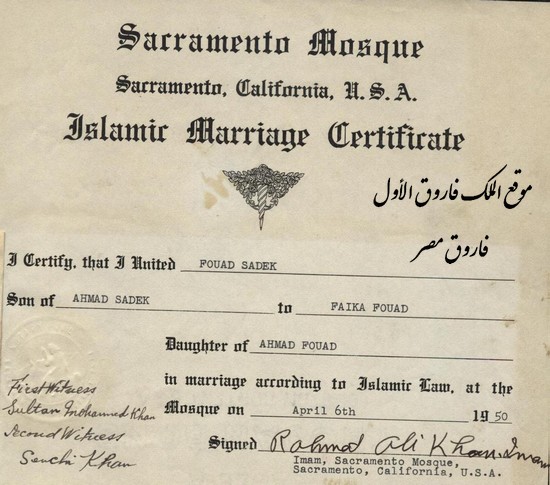 Sacramento Mosque
Sacramento, California, U.S.A.
Islamic Marriage Certificate
موقع الملك فاروق الأول
فاروق مصر
I Certify, that I United FOUAD SADEK
Son of AHMAD SADEK to FAIKA FOUAD
Daughter of AHMAD FOUAD
in marriage according to Islamic Law, at the
Mosque on April 6th 1950
First Witness
Sultan Mohammed Khan
Second Witness
Senchi Khan
Signed Rahmat Ali Khan. Imam
Imam, Sacramento Mosque,
Sacramento, California, U.S.A.